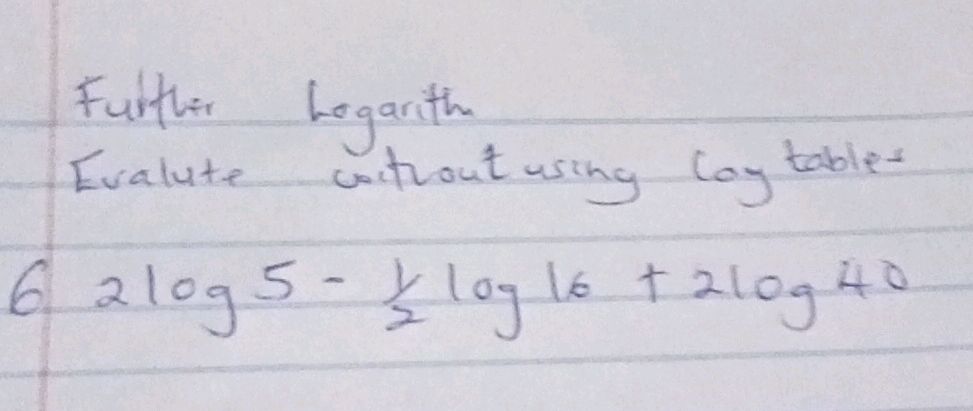 Further Logarith
Evalute without using log tables
6 2log5 - 1/2 log 16 + 2log 40